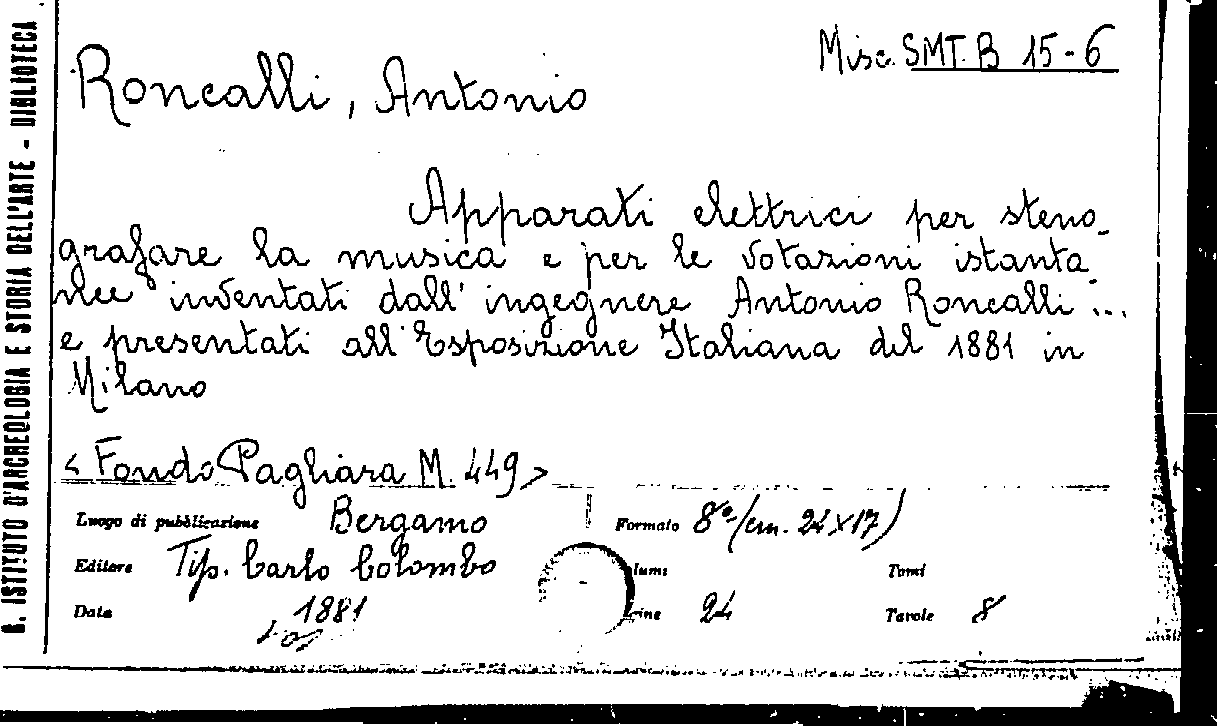 R. ISTITUTO D'ARCHEOLOGIA E STORIA DELL'ARTE - BIBLIOTECA
Misc. SMT. B 15-6
Roncalli, Antonio
Apparati elettrici per steno-
grafare la musica e per le votazioni istanta-
nee inventati dall'ingegnere Antonio Roncalli ...
e presentati all'Esposizione Italiana del 1881 in
Milano
< Fondo Pagliara M. 449 >
Luogo di pubblicazione Bergamo Formato 8º (cm. 24x17)
Editore Tip. Carlo Colombo lumi Tomi
Data 1881 gine 24 Tavole 8